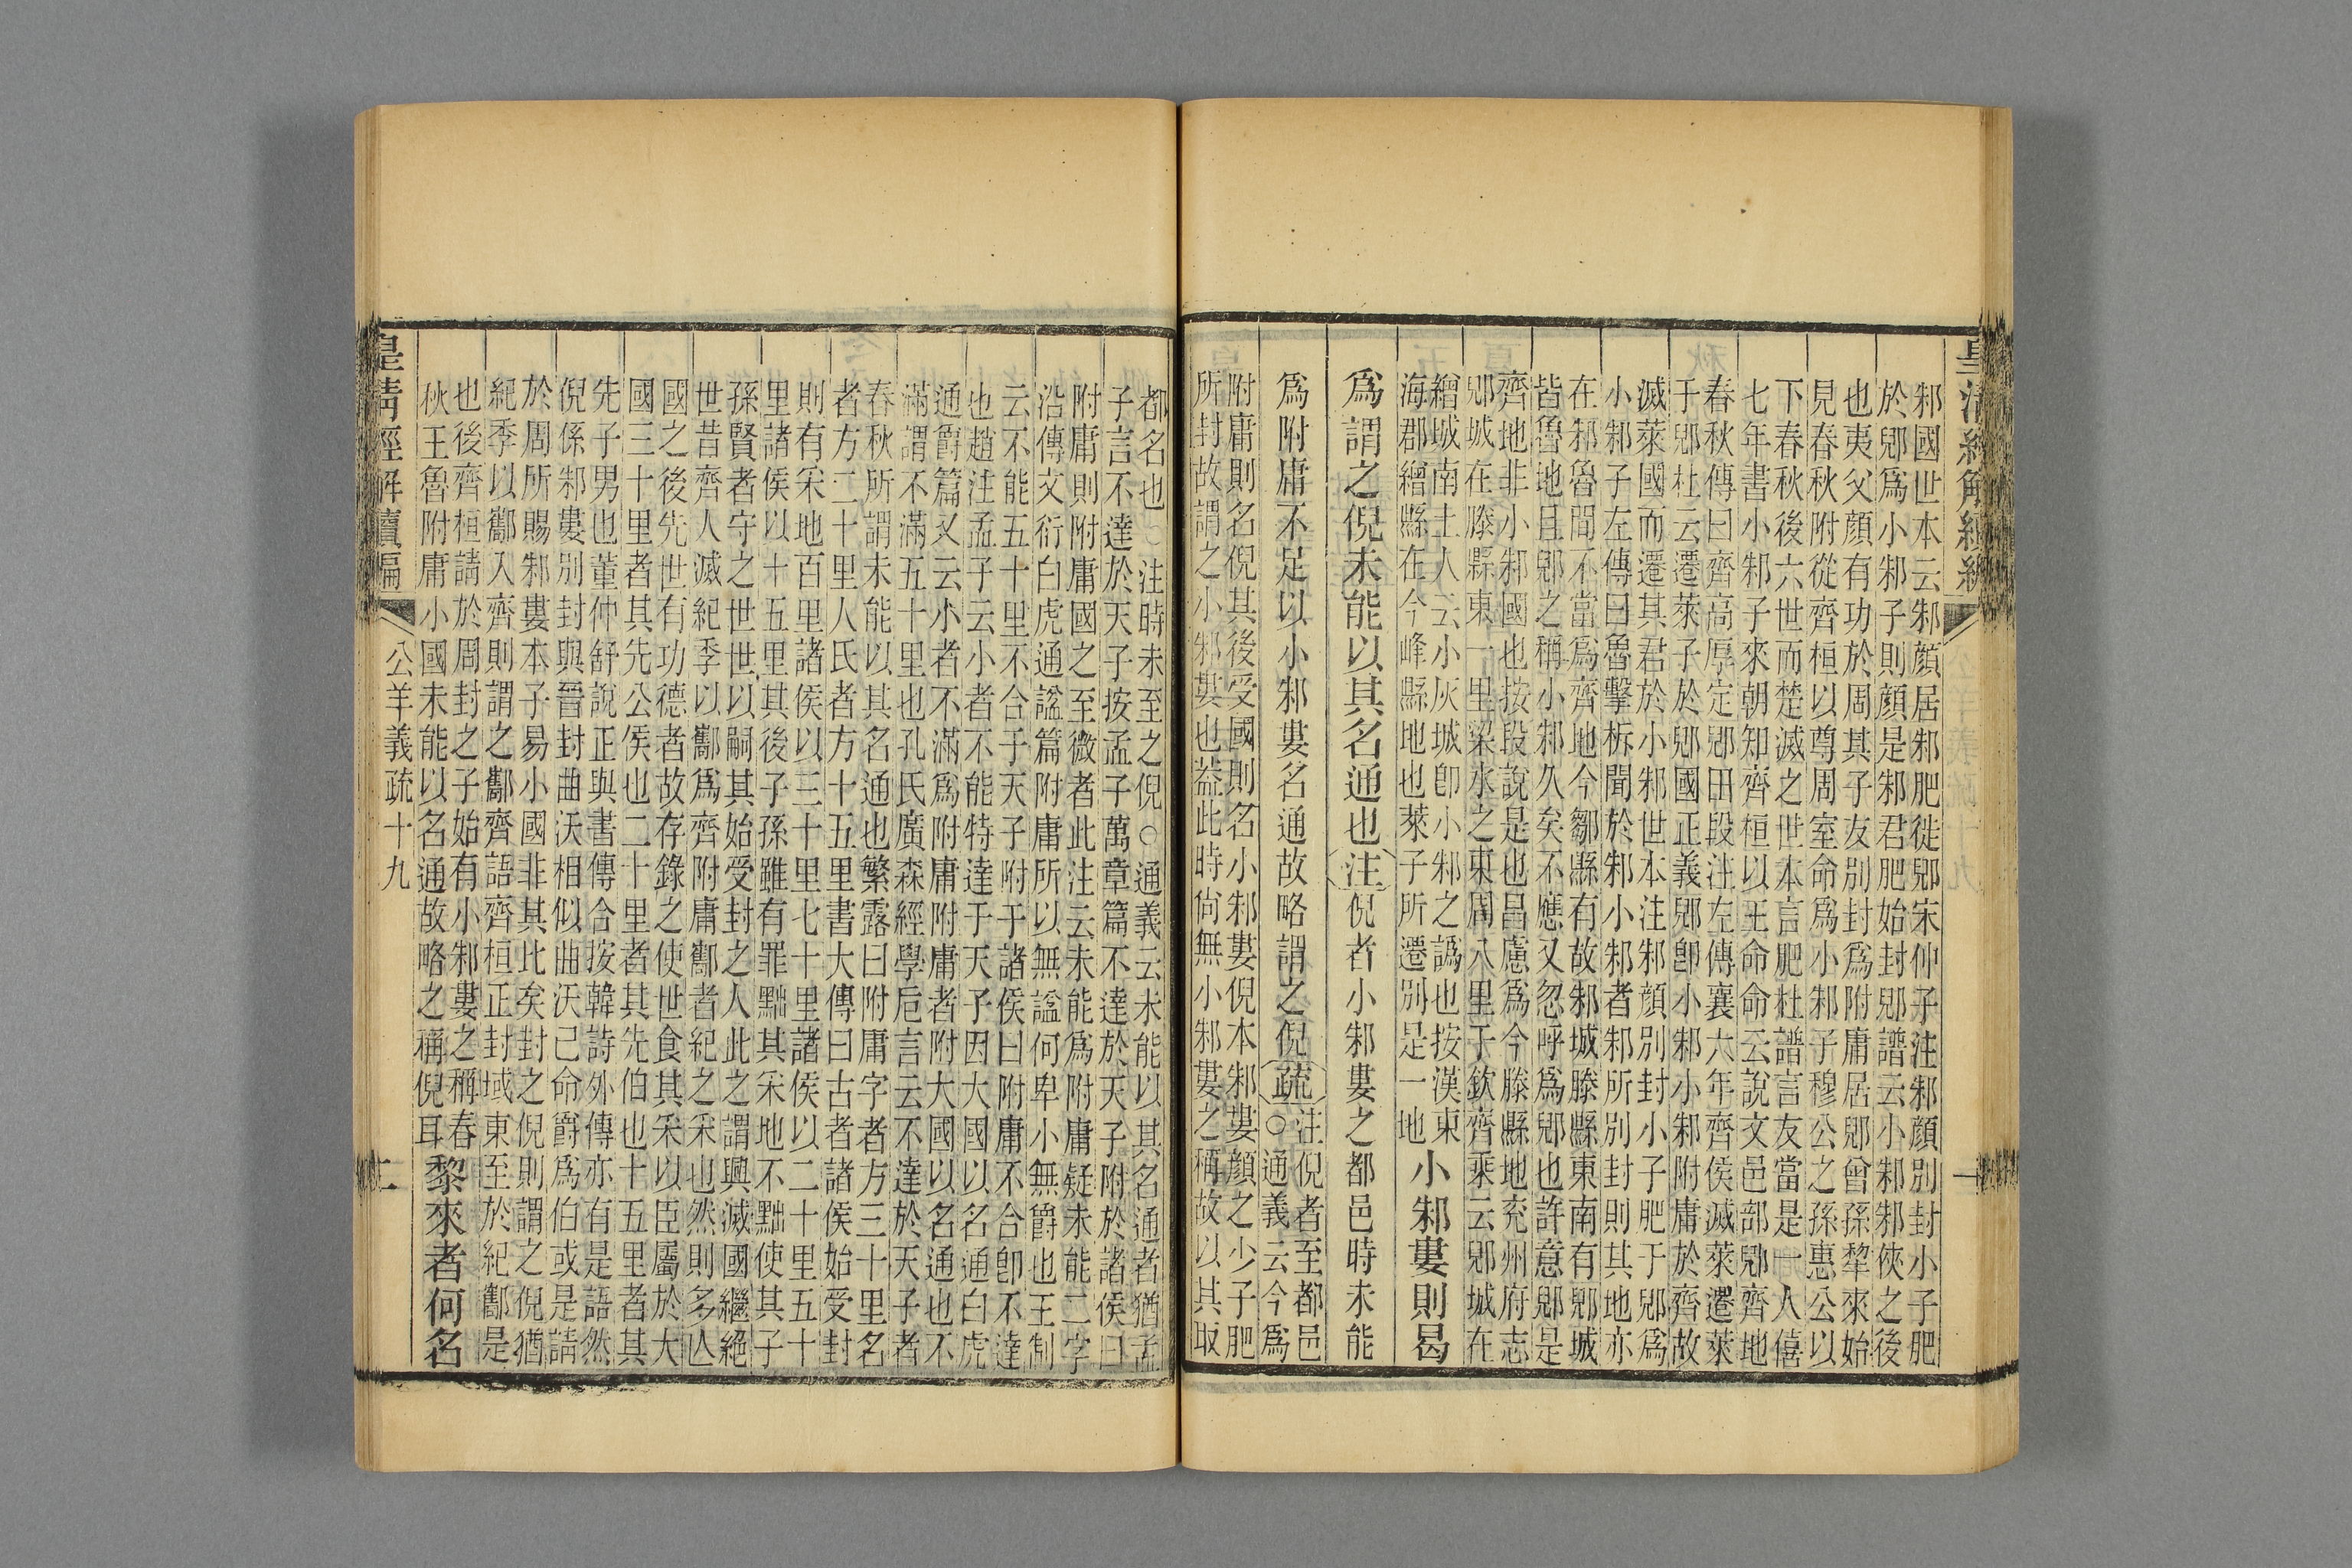 皇清經解續編
一
邾國世本云邾顔居邾肥徙郳宋仲子注邾顔別封小子肥
於郳爲小邾子則顔是邾君肥始封郳譜云小邾邾俠之後
也夷父顔有功於周其子友別封爲附庸居郳曾孫犂來始
見春秋附從齊桓以尊周室命爲小邾子穆公之孫惠公以
下春秋後六世而楚滅之世本言肥杜譜言友當是一人僖
七年書小邾子來朝知齊桓以王命命云說文邑部郳齊地
春秋傳曰齊高厚定郳田段注左傳襄六年齊侯滅萊遷萊
于郳杜云遷萊子於郳國正義郳卽小邾小邾附庸於齊故
滅萊國而遷其君於小邾世本注邾顔別封小子肥于郳爲
小邾子左傳曰魯擊柝聞於邾小邾者邾所別封則其地亦
在邾魯間不當爲齊地今鄒縣有故邾城滕縣東南有郳城
皆魯地且郳之稱小邾久矣不應又忽呼爲郳也許意郳是
齊地非小邾國也按段說是也昌慮爲今滕縣地兖州府志
郳城在滕縣東一里梁水之東周八里于欽齊乘云郳城在
繒城南土人云小灰城卽小邾之譌也按漢東
海郡繒縣在今嶧縣地也萊子所遷別是一地
小邾婁則曷
爲謂之倪未能以其名通也注倪者小邾婁之都邑時未能
爲附庸不足以小邾婁名通故略謂之倪疏注倪者至都邑
○通義云今爲
附庸則名倪其後受國則名小邾婁倪本邾婁顔之少子肥
所封故謂之小邾婁也蓋此時尙無小邾婁之稱故以其取
都名也○注時未至之倪○通義云未能以其名通者猶孟
子言不達於天子按孟子萬章篇不達於天子附於諸侯曰
附庸則附庸國之至微者此注云未能爲附庸疑未能二字
沿傳文衍白虎通諡篇附庸所以無諡何卑小無爵也王制
云不能五十里不合于天子附于諸侯曰附庸不合卽不達
也趙注孟子云小者不能特達于天子因大國以名通白虎
通爵篇又云小者不滿爲附庸附庸者附大國以名通也不
滿謂不滿五十里也孔氏廣森經學卮言云不達於天子者
春秋所謂未能以其名通也繁露曰附庸字者方三十里名
者方二十里人氏者方十五里書大傳曰古者諸侯始受封
則有采地百里諸侯以三十里七十里諸侯以二十里五十
里諸侯以十五里其後子孫雖有罪黜其采地不黜使其子
孫賢者守之世世以嗣其始受封之人此之謂興滅國繼絶
世昔齊人滅紀季以酅爲齊附庸酅者紀之采也然則多亾
國之後先世有功德者故存錄之使世食其采以臣屬於大
國三十里者其先公侯也二十里者其先伯也十五里者其
先子男也董仲舒說正與書傳合按韓詩外傳亦有是語然
倪係邾婁別封與晉封曲沃相似曲沃已命爵爲伯或是請
於周所賜邾婁本子易小國非其比矣封之倪則謂之倪猶
紀季以酅入齊則謂之酅齊語齊桓正封域東至於紀酅是
也後齊桓請於周封之子始有小邾婁之稱春
秋王魯附庸小國未能以名通故略之稱倪耳
黎來者何名
皇清經解續編
公羊義疏十九
二